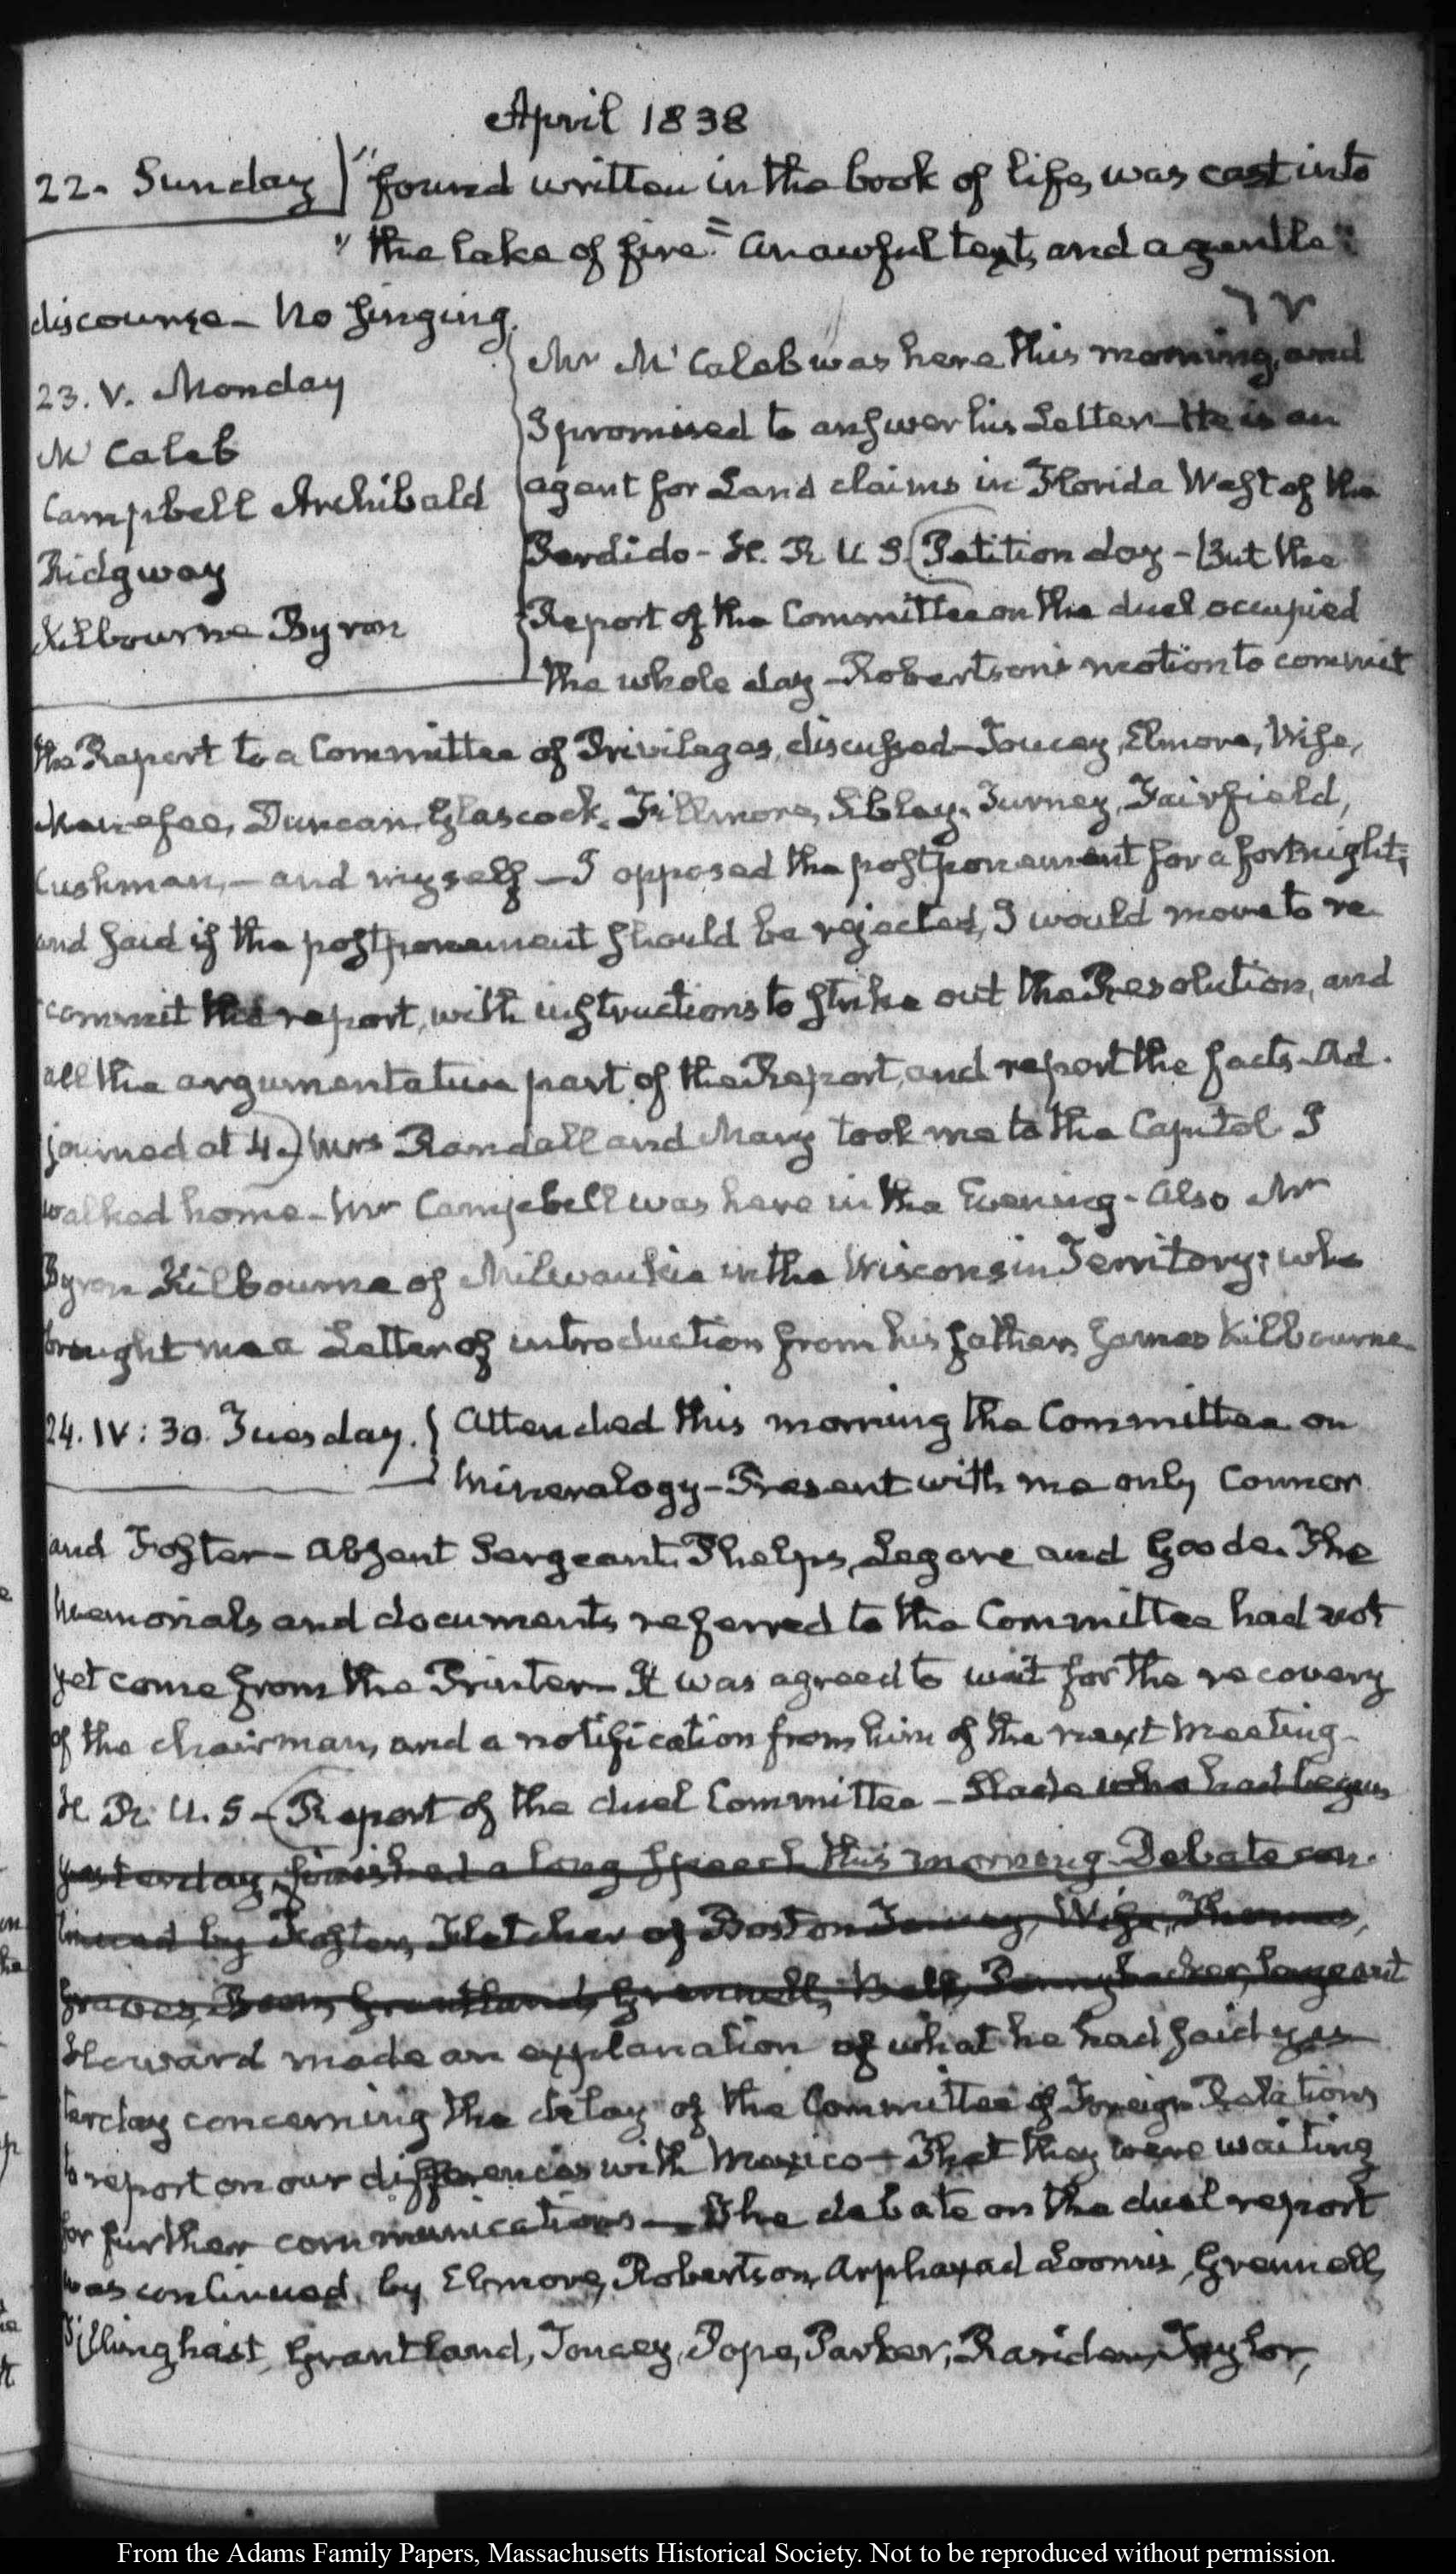 April 1838
22. Sunday } "found written in the book of life, was cast into
" the lake of fire." An awful text, and a gentle
discourse — No singing.
23. V. Monday
Mr McCaleb was here this morning, and
I promised to answer his Letter — He is an
McCaleb
agent for Land claims in Florida West of the
Campbell Archibald
Perdido — H. R. U S. (Petition day — But the
Ridgway
Report of the Committee on the duel occupied
Kilbourne Byron
the whole day — Robertson's motion to commit
the Report to a Committee of Privileges, discussed — Toucey, Elmore, Wise,
Menefee, Duncan, Glascock, Fillmore, Sibley, Turney, Fairfield,
Cushman, — and myself — I opposed the postponement for a fortnight;
and said if the postponement should be rejected, I would move to re
commit the report, with instructions to strike out the Resolution, and
all the argumentative part of the Report, and report the facts — Ad.
journed at 4.) Mrs Randall and Mary took me to the Capitol I
walked home — Mr Campbell was here in the Evening — Also Mr
Byron Kilbourne of Milwaukie in the Wisconsin Territory; who
brought me a Letter of introduction from his father, James Kilbourne
24. IV: 30. Tuesday. } Attended this morning the Committee on
Mineralogy — Present with me only Connor
and Foster — Absent Sergeant, Phelps, Legare and Goode. The
memorials and documents referred to the Committee had not
yet come from the Printer — It was agreed to wait for the recovery
of the chairman, and a notification from him of the next meeting —
H R. U. S — (Report of the duel Committee — Slade who had begun
yesterday, finished a long speech this morning — Debate con.
tinued by Foster, Fletcher of Boston Toucey, Wise, Thomas,
Graves, Boon, Grantland, Grennell, Bell, Pennybacker,
Howard made an explanation of what he had said yes
terday concerning the delay of the Committee of Foreign Relations
to report on our differences with Mexico — That they were waiting
for further communications — The debate on the duel report
was continued, by Elmore, Robertson, Arphaxad Loomis, Grennell,
Tillinghast, Grantland, Toucey, Pope, Parker, Rariden, Taylor,
From the Adams Family Papers, Massachusetts Historical Society. Not to be reproduced without permission.